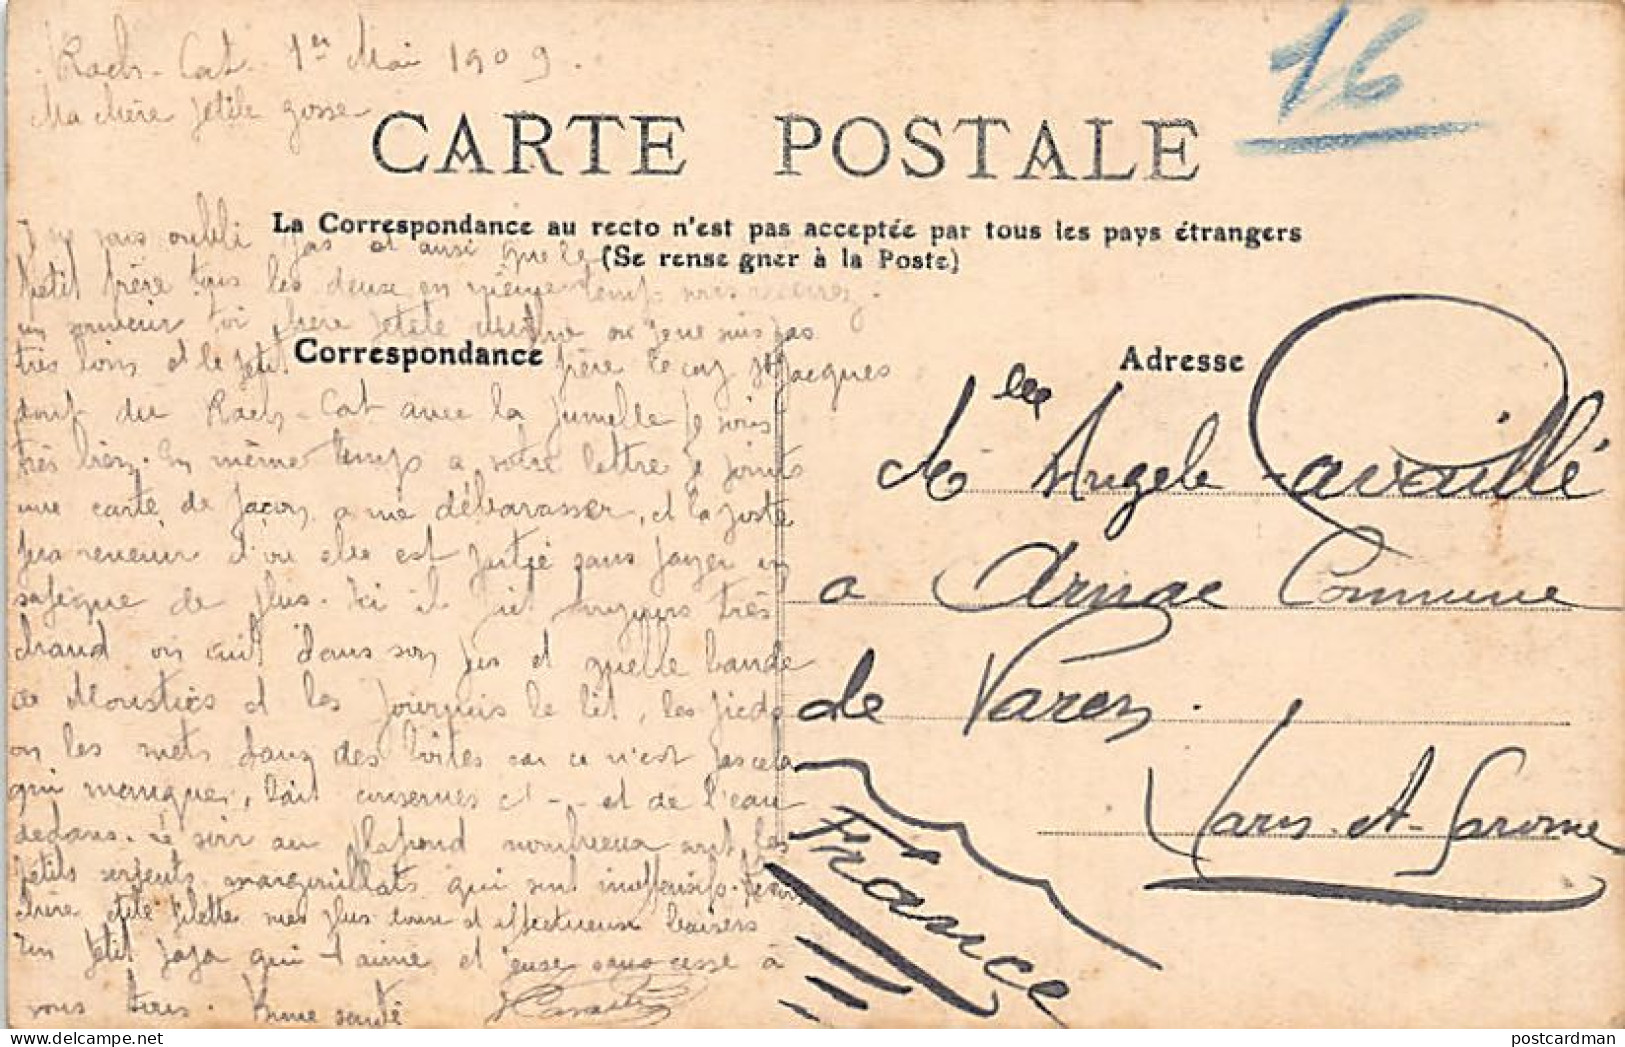 Rach-Cat 1er Mai 1909.
Ma chère petite gosse
16
CARTE POSTALE
La Correspondance au recto n'est pas acceptée par tous les pays étrangers
(Se renseigner à la Poste)
Correspondance
Adresse
oublie pas et ainsi que le
petit frère tous les deux en même temps recevrez
un souvenir toi chère petite où je ne suis pas
très loin et le petit frère le cap St Jacques
du Rach-Cat avec la jumelle je vois
très bien. En même temps a votre lettre je joints
une carte de façon a me débarasser, et la poste
revenir d'où elle est partie sans payer un
de plus. Ici il fait toujours très
chaud on cuit dans son jus et quelle bande
de Moustics et les fourmis le lit, les pieds
on les mets dans des boites car ce n'est pas cela
qui manque, lait et de l'eau
dedans. Le soir au plafond nombreux sont les
petits serpents margouillats qui sont inoffensifs.
chère petite mes plus doux et affectueux baisers
Un petit papa qui t'aime et pense sans cesse à
vous tous. Bonne santé
Mlle Angele Lavaillé
a Arnac Commune
de Varen.
Tarn-et-Garonne
France
postcardman
postcardman.net